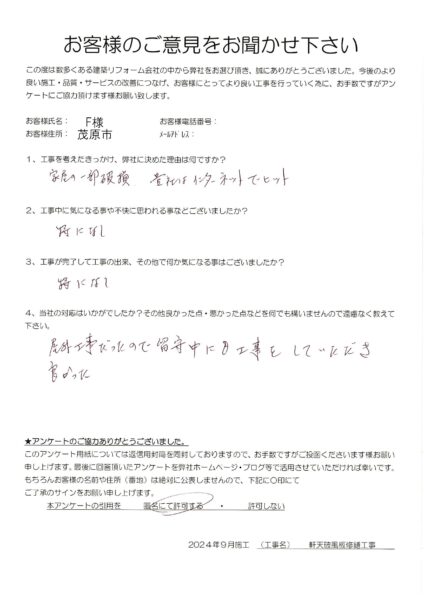 お客様のご意見をお聞かせ下さい
この度は数多くある建築リフォーム会社の中から弊社をお選び頂き、誠にありがとうございました。今後のより
良い施工・品質・サービスの改善につなげ、お客様にとってより良い工事を行っていく為に、お手数ですがアン
ケートにご協力頂けます様お願い致します。
お客様氏名： F様 お客様電話番号：
お客様住所： 茂原市 メールアドレス：
1、工事を考えたきっかけ、弊社に決めた理由は何ですか？
家屋の一部破損 貴社はインターネットでヒット
2、工事中に気になる事や不快に思われる事などございましたか？
特になし
3、工事が完了して工事の出来、その他で何か気になる事はございましたか？
特になし
4、当社の対応はいかがでしたか？その他良かった点・悪かった点などを何でも構いませんので遠慮なく教えて
下さい。
屋外工事だったので留守中にも工事をしていただき
良かった
★アンケートのご協力ありがとうございました。
このアンケート用紙については返信用封筒を同封しておりますので、お手数ですがご投函くださいます様お願い
申し上げます。最後に回答頂いたアンケートを弊社ホームページ・ブログ等で活用させていただければ幸いです。
もちろんお客様の名前や住所（番地）は絶対に公表しませんので、下記に〇印にて
ご了承のサインをお願い申し上げます。
本アンケートの引用を 匿名にて許可する ・ 許可しない
2024年9月施工 （工事名） 軒天破風板修繕工事